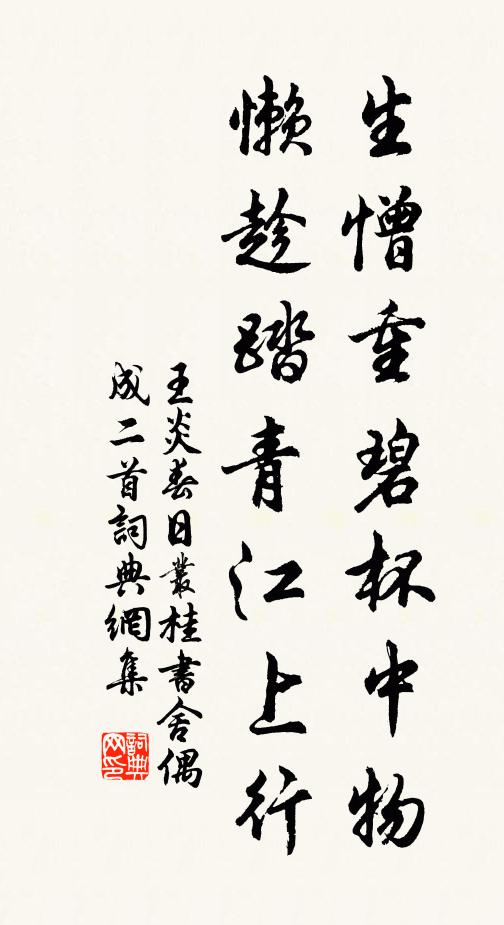 生憎重碧杯中物
懶趁踏青江上行
王炎春日叢桂書舍偶
成二首詞典網集
詞典网印